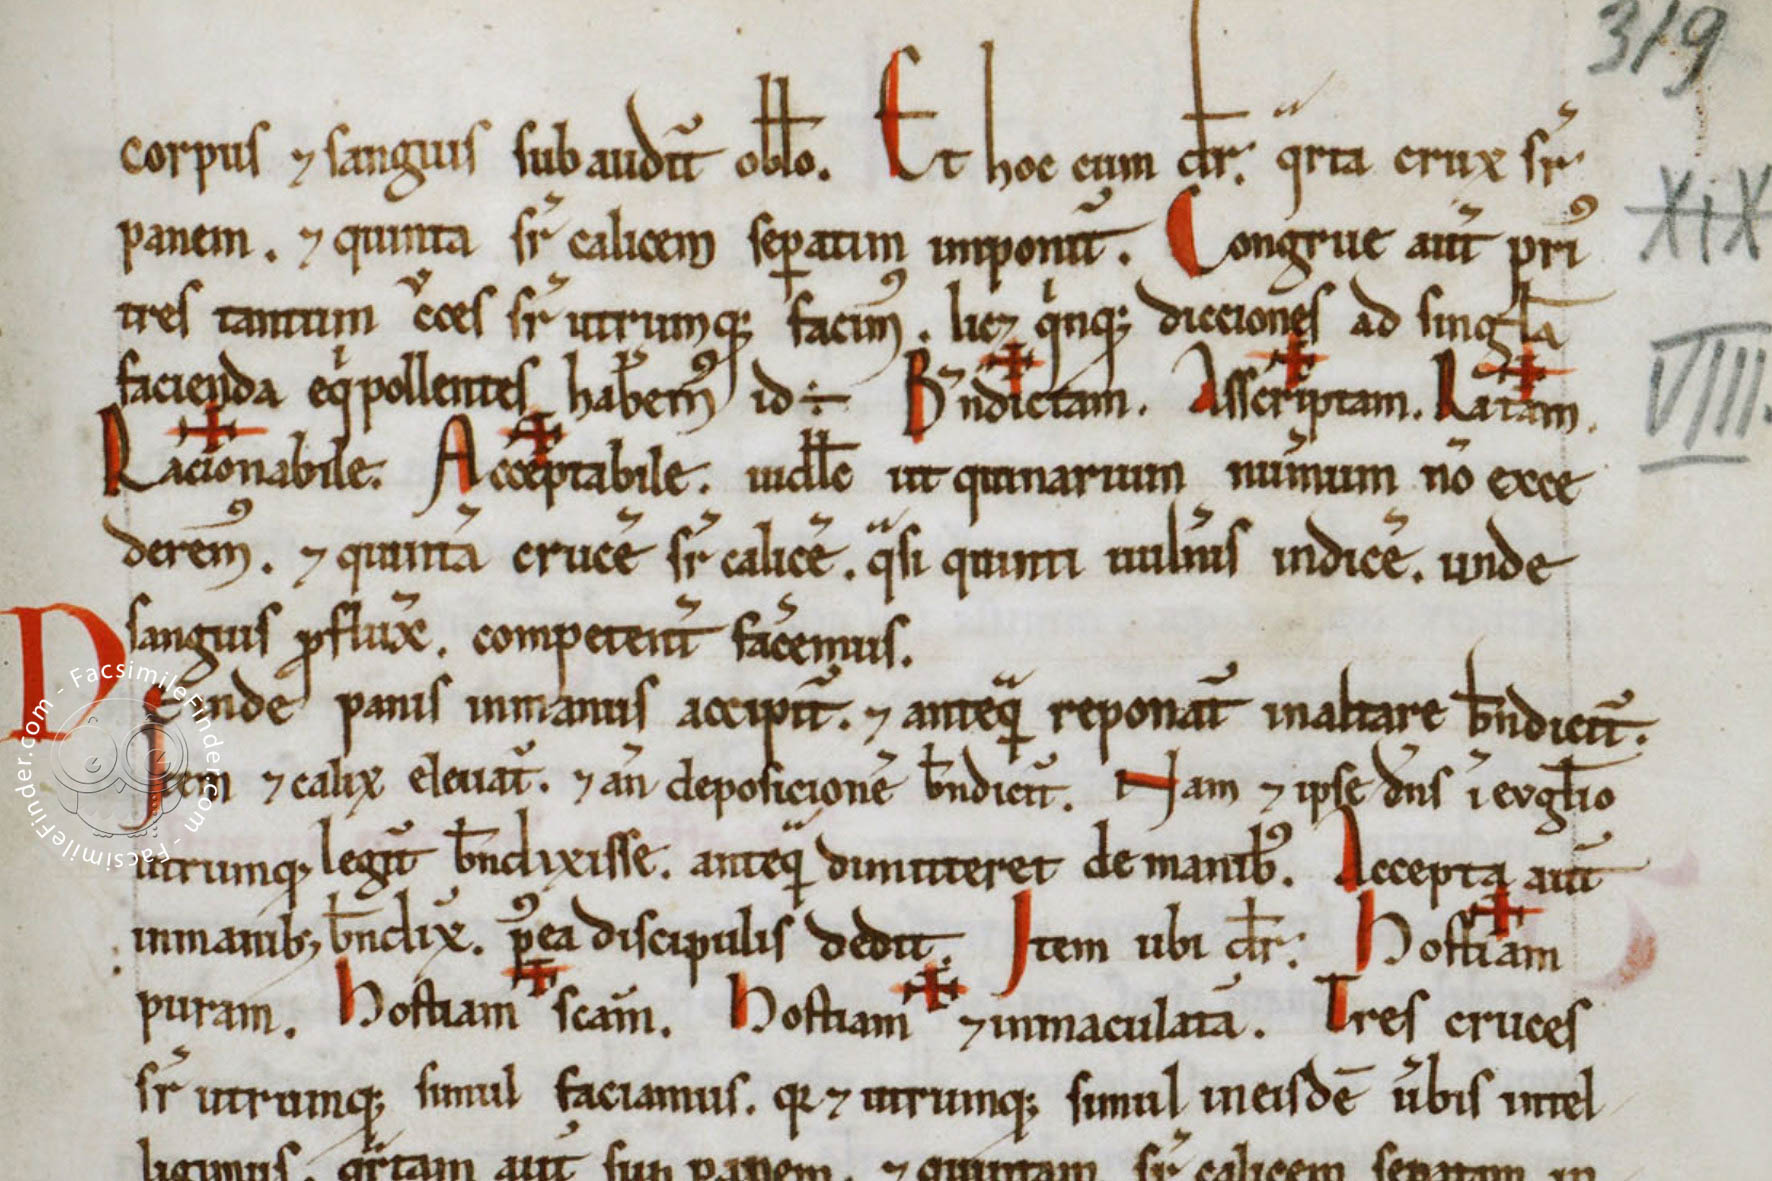 319
corpus ⁊ sanguis subaudit̄ obl̄o. Et hoc cum dr̄. qͣrta crux sr̄
panem. ⁊ quinta sr̄ calicem seꝑatim imponit̄. Congrue aut̄ priꝰ
tres tantum cͮces sr̄ utrumq; facimꝰ. licꝫ qͥnq; dicciones ad singl̄a
facienda eqͥpollentes habemꝰ id ÷ Bn̄dictam. Asscriptam. Ratam.
Racionabile. Acceptabile. uidl̄c ut quinarium num̄um nō exce
deremꝰ. ⁊ quintā crucē sr̄ calicē. qͣsi quinti uuln̄is indicē. unde
sanguis ꝓflux̄. competent̄ facemus.
XIX
VIIII.
Deinde panis inmanus accipit̄. ⁊ anteqͣ reponat̄ inaltare bn̄dicit̄.
Item ⁊ calix eleuat̄. ⁊ an̄ deposicionē bn̄dicit̄. Nam ⁊ ipse dn̄s ī evgl̄io
utrumq; legit̄ bn̄dixisse. anteqͣ dimitteret de manibꝰ. Accepta aut̄
inmanib; bn̄dix̄. pꝰea discipulis dedit. Item ubi dr̄. Hostiam
puram. Hostiam sc̄am. Hostiam ⁊ inmaculatā. Tres cruces
sr̄ utrumq; simul faciamus. qr ⁊ utrumq; simul ineisdē ūbis intel
ligimus. qͣrtam aut̄ sup̄ panem. ⁊ quintam sr̄ calicem separatim in
FacsimileFinder.com - FacsimileFinder.com -